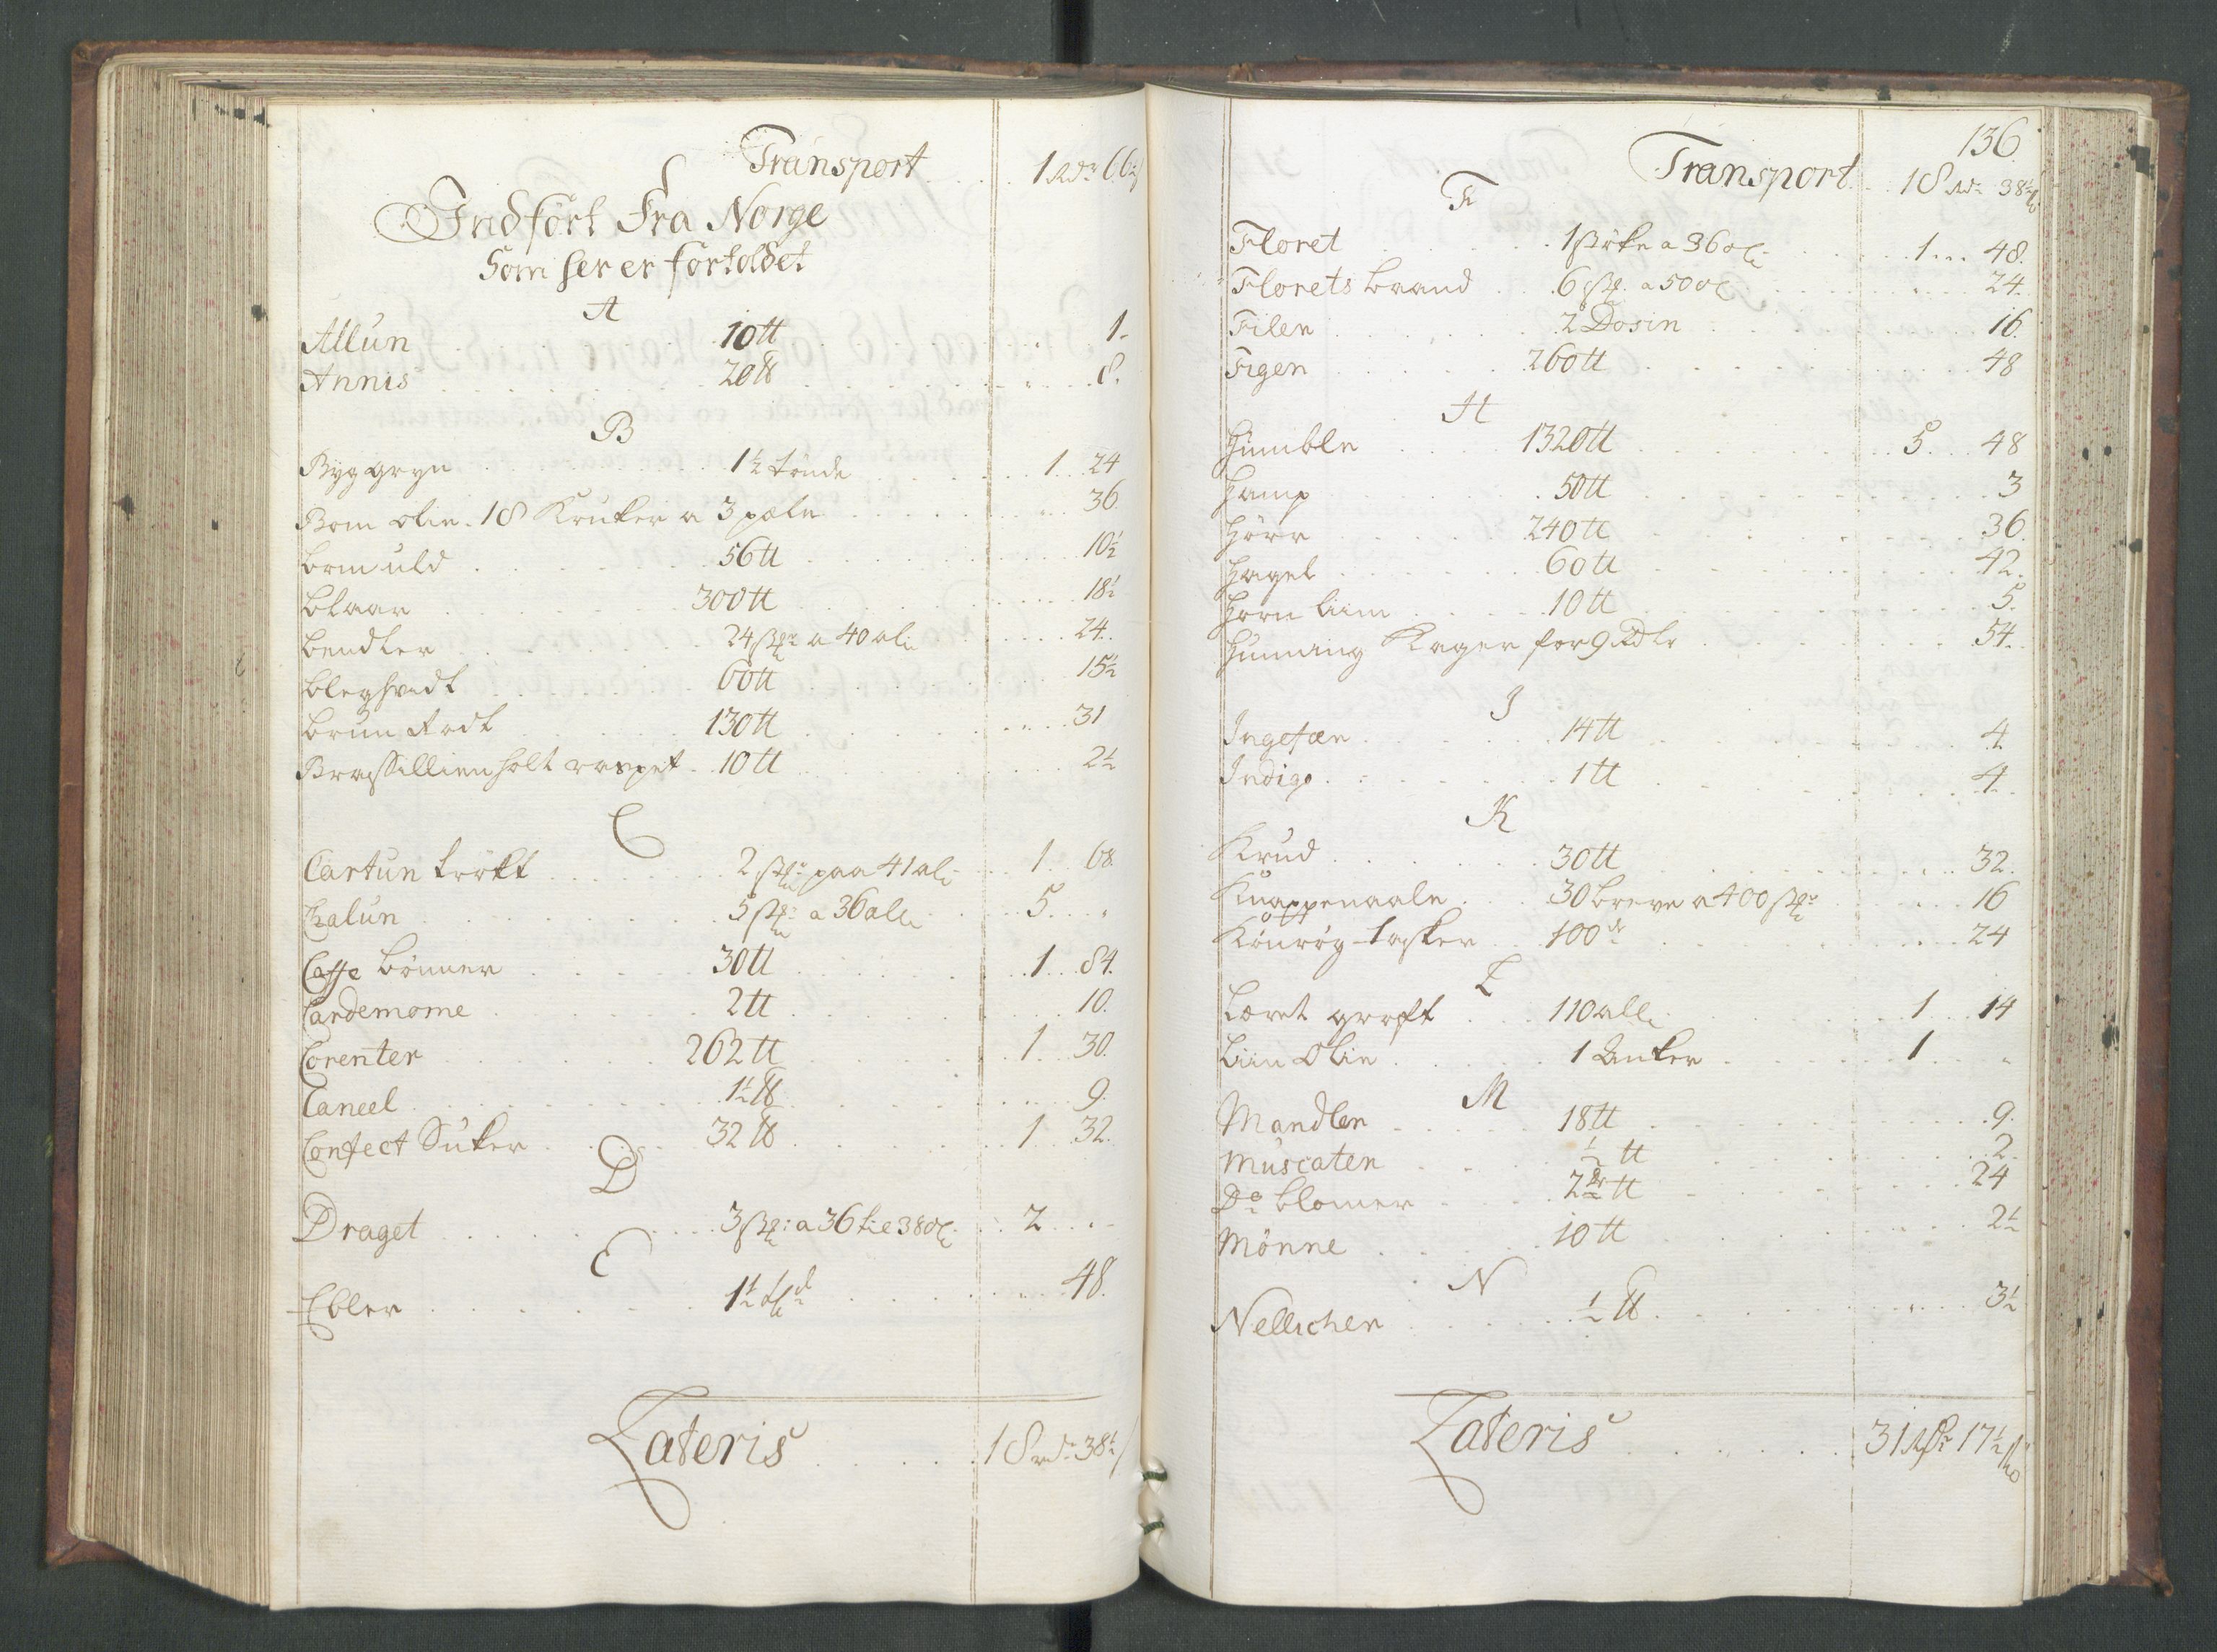 Transport . . . 1 Rdr 66½
Indført Fra Norge
Som her er fortoldet
A
Allun . . . 10 tt . . . 1.
Annis . . . 20 tt . . . 8.
B
Byg gryn . . . 1½ tønde . . . 1 . . 24
Bom olie. 18 Kruker a 3 pæle . . . 36.
bomuld . . . 56 tt . . . 10½
blaar . . . 300 tt . . . 18½
bendler . . . 24 stkr a 40 al . . . 24.
bleghvidt . . . 60 tt . . . 15½
brun Rødt . . . 130 tt . . . 31
Brassillienholt raspet . . 10 tt . . . 2½
C
Cartun trøkt . . . 2 stkr paa 41 al . . . 1 . . 68.
Chalun . . . 5 stkr a 36 alle . . . 5 . . .
Caffe bønner . . . 30 tt . . . 1 . . 84.
Cardemome . . . 2 tt . . . 10.
Corenter . . . 262 tt . . . 1 . . 30.
Caneel . . . 1½ tt . . . 9.
Confect Suker . . . 32 tt . . . 1 . . 32.
D
Draget . . . 3 stk: a 36 til 38 al . . . 2 . . .
E
Ebler . . . 1½ . . . 48.
Lateris . . . 18 rdr 38½
136.
Transport . . 18 Rdr 38½
F
Floret . . . 1 støke a 36 al . . . 1 . . . 48.
Florets baand . . . 6 stk. a 50 al . . . 24.
Filer . . . 2 Dosin . . . 16.
Figen . . . 260 tt . . . 48
H
Humble . . . 1320 tt . . . 5 . . 48
Hamp . . . 50 tt . . . 3
Hørr . . . 240 tt . . . 36.
Hagel . . . 60 tt . . . 42.
Horn liim . . . 10 tt . . . 5.
Hunning Kager for 9 Rdlr . . . 54.
I
Ingefær . . . 14 tt . . . 4.
Indigo . . . 1 tt . . . 4.
K
Krud . . . 30 tt . . . 32.
Knappenaale . . . 30 breve a 400 stkr . . . 16
Kønrøg-tasker . . . 100 . . . 24
L
Læret groft . . . 110 alle . . . 1 . . 14
Liin Olie . . . 1 Anker . . . 1 . . .
M
Mandler . . . 18 tt . . . 9.
Muscaten . . . ½ tt . . . 2.
Do blomer . . . 2 tt . . . 24
Mønne . . . 10 tt . . . 2½
N
Nellichen . . . ½ tt . . . 3½
Lateris . . . 31 Rdr 17½